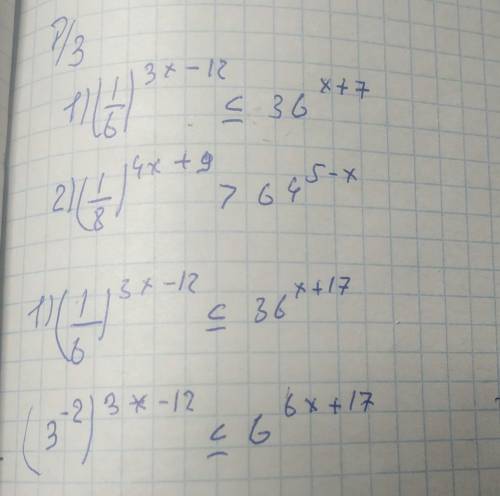 Р/З
1) (1/6)^{3x-12} ≤ 36^{x+7}
2) (1/8)^{4x+9} > 64^{5-x}
1) (1/6)^{3x-12} ≤ 36^{x+17}
(3^{-2})^{3x-12} ≤ 6^{6x+17}